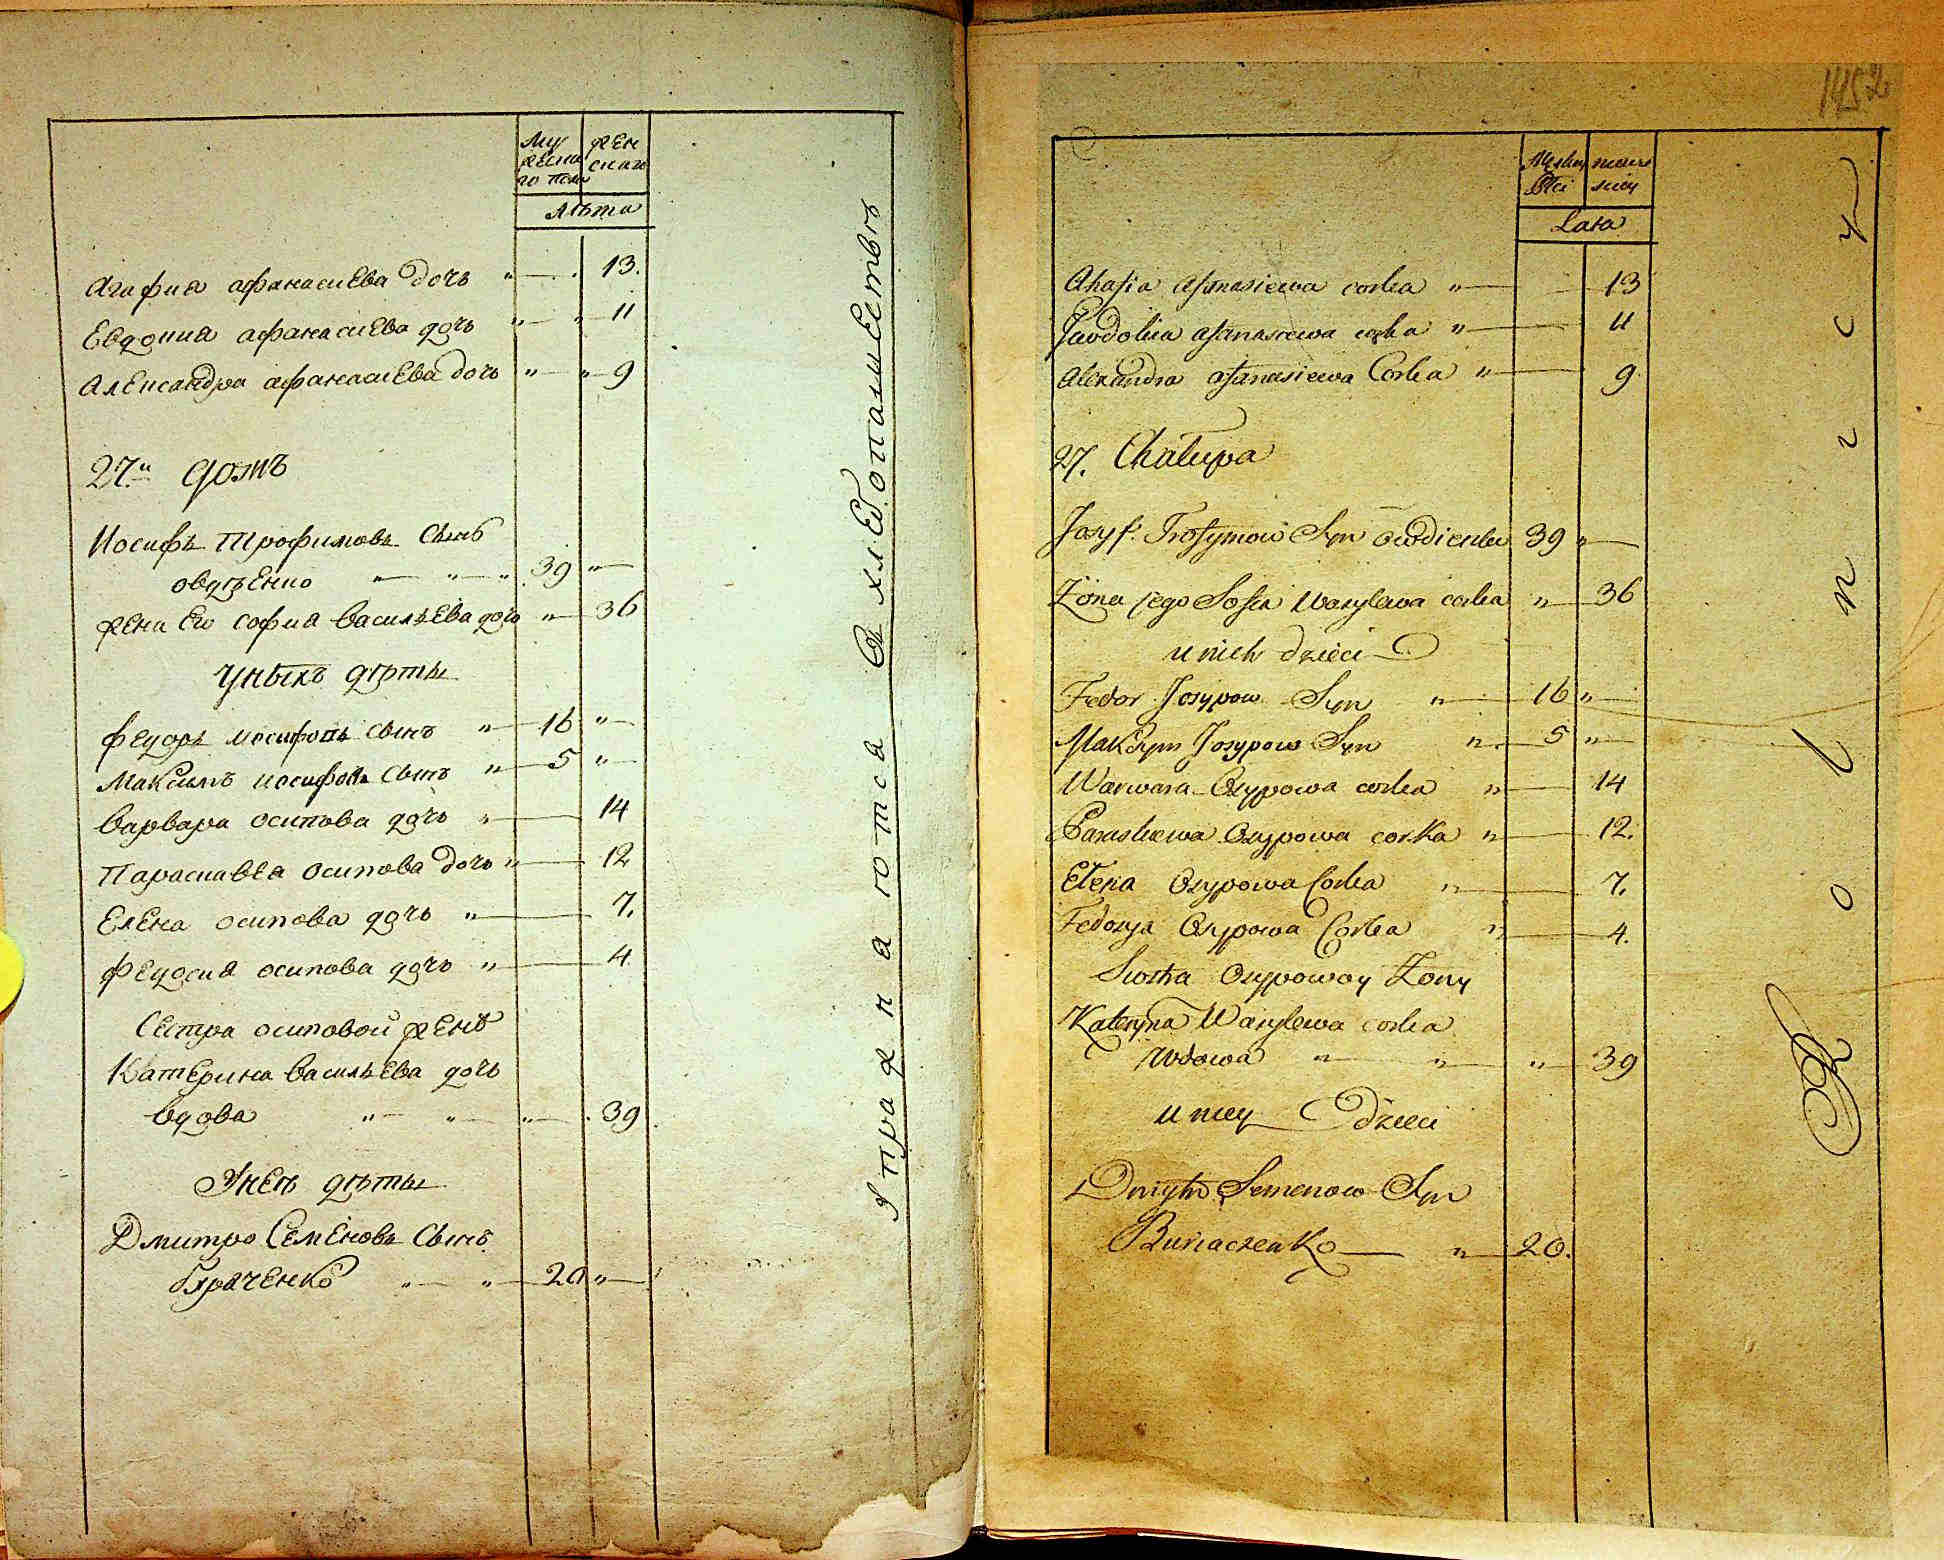 Му
жеска
го пола
жен
скаго
Лѣта
Агафия афанасиева дочъ " — " 13.
Евдокия афанасиева дочъ " — " — 11
Александра афанасиева дочъ " — " — 9
27.й домъ
Иосифъ Трофимовъ сынъ
овдѣенко " — " — " 39 " —
жена Его софия васильева дочъ " — 36
у ныхъ дѣты
Федоръ иосифовъ сынъ " — 16 " —
Максимъ иосифовъ сынъ " — 5 " —
варвара осипова дочъ " — 14
Параскавея осипова дочъ " — 12
Елена осипова дочъ " — 7.
Федосия осипова дочъ " — 4
Сестра осиповой женѣ
Катерина васильева дочъ
вдова " — " — " — 39
У неѣ дѣты
Дмитро Семеновъ сынъ
" — " — 20 " —
Упражнаются в хлебопашествѣ
1452
Męskey
Płci
Lata
Ahafia Afanasiewa corka " — 13
Jewdokia Afanasiewa corka " — 11
Alexandra Afanasiewa Corka " — 9
27. Chałupa
Josyf Trofymow Syn Owdieenko 39 " —
Żona jego Sofia Wasylewa corka " — 36
u nich dzieci
Fedor Josypow Syn " — 16 " —
Maksym Josypow Syn " — 5 " —
Warwara Osypowa corka " — 14
Paraskewa Osypowa corka " — 12.
Elena Osypowa Corka " — 7.
Fedosya Osypowa Corka " — 4.
Siostra Osypowoy Żony
Kateryna Wasylewa corka
Wdowa " — " — " — 39
u niey Dzieci
Dmytr Semenow Syn
Buriaczenko — " — 20.
Rolnicy